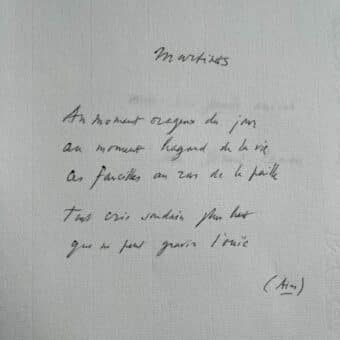 Martinets
Au moment orageux du jour
au moment hagard de la vie
ces faucilles au ras de la paille
Tout crie soudain plus haut
que ne peut gravir l'ouïe
(Airs)